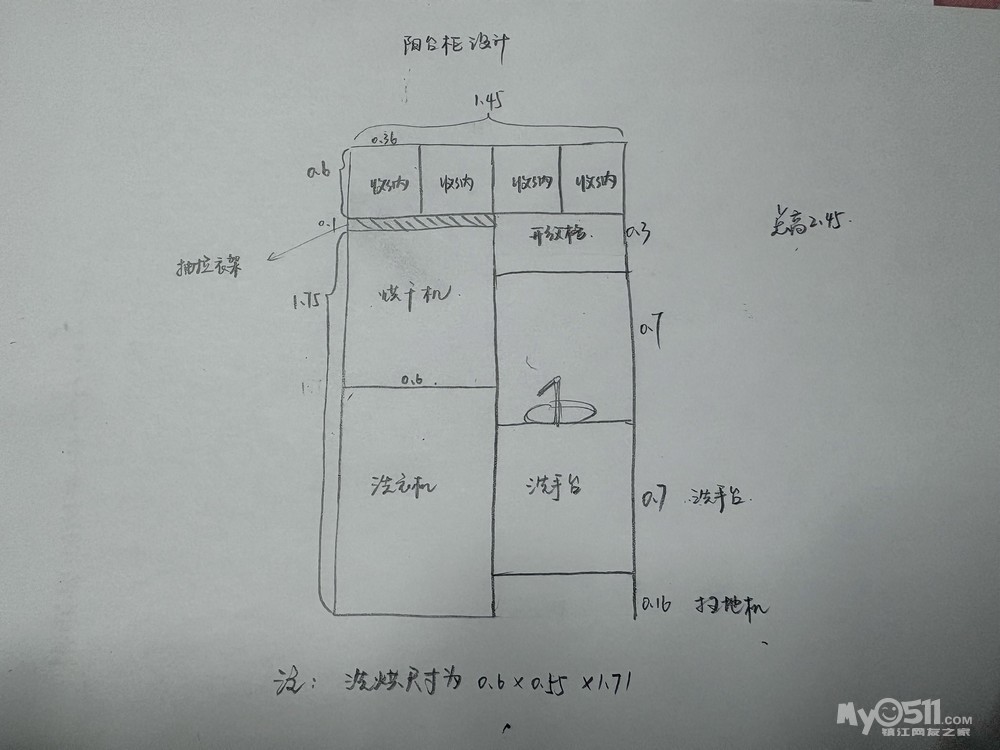 阳台柜设计
1.45
0.36
0.6
收纳 收纳 收纳 收纳
0.1
开放格
0.3
总高2.45
抽拉衣架
1.75
烘干机
0.7
0.6
洗衣机
洗手台
0.7 洗手台
0.16 扫地机
注：洗烘尺寸为 0.6×0.55×1.71
My0511.COM
镇江网友之家